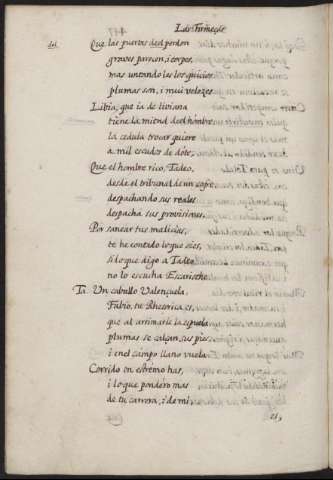 Las Firmezas
del
Que las puertas deel perdon
graves parecen, i torpes,
mas untando les los quicios
plumas son, i mui veloces.
Libia, que ia de liviana
tiene la mitad deel hombre
la cedula trocar quiere
a mil escudos de dote;
Que el hombre rico, Tadeo,
desde el tribunal de un cofre
despachando sus reales
despacha sus provisiones.
Por sanear tus malicias,
te he contado lo que oies,
si lo que digo a Tadeo
no lo escucha Escarioche.
Ta. Un caballo Valençuela,
Fabio, tu Rhetorica es,
que al arrimarle la espuela
plumas se calçan, sus pies
i en el campo llano vuela.
Corrido en estremo has,
i lo que pondero mas
de tu carrera, i de mi,
es,